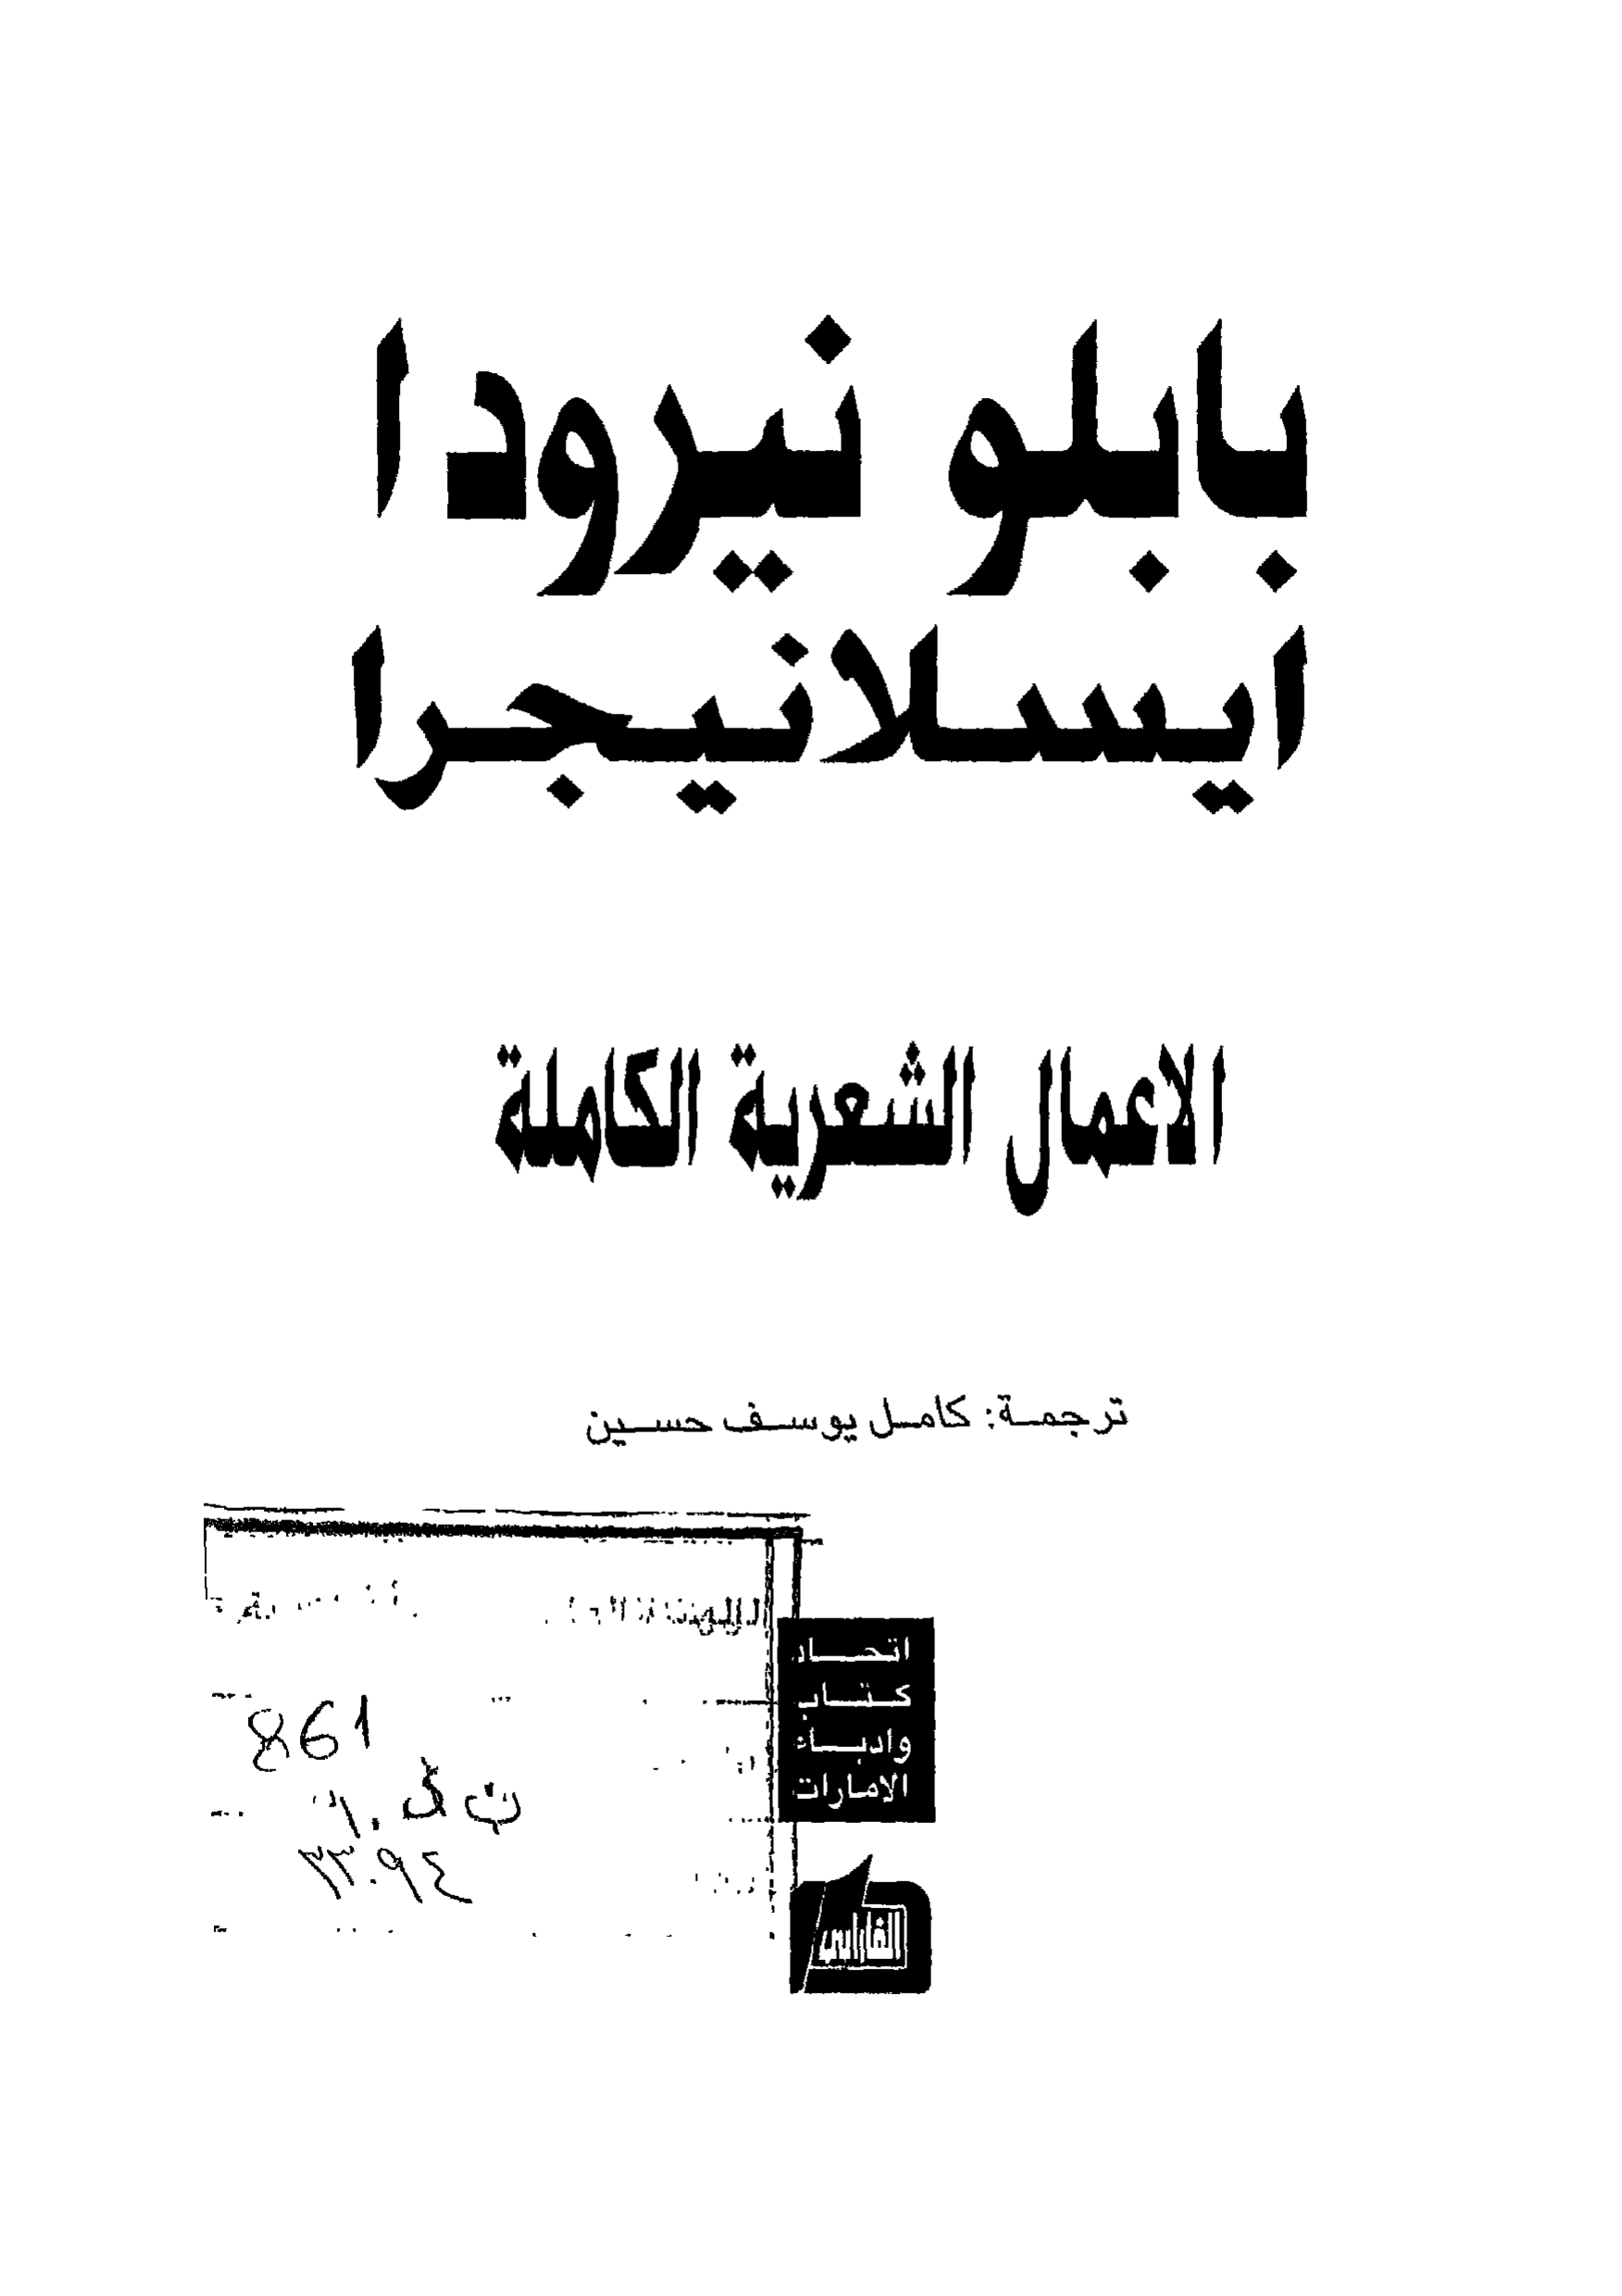 بابلو نيرودا
ايسلانيجرا
الاعمال الشعرية الكاملة
ترجمة: كامل يوسف حسين
اتحاد
كتاب
وادباء
الامارات
861
٣٣٠٩٤
الفارس